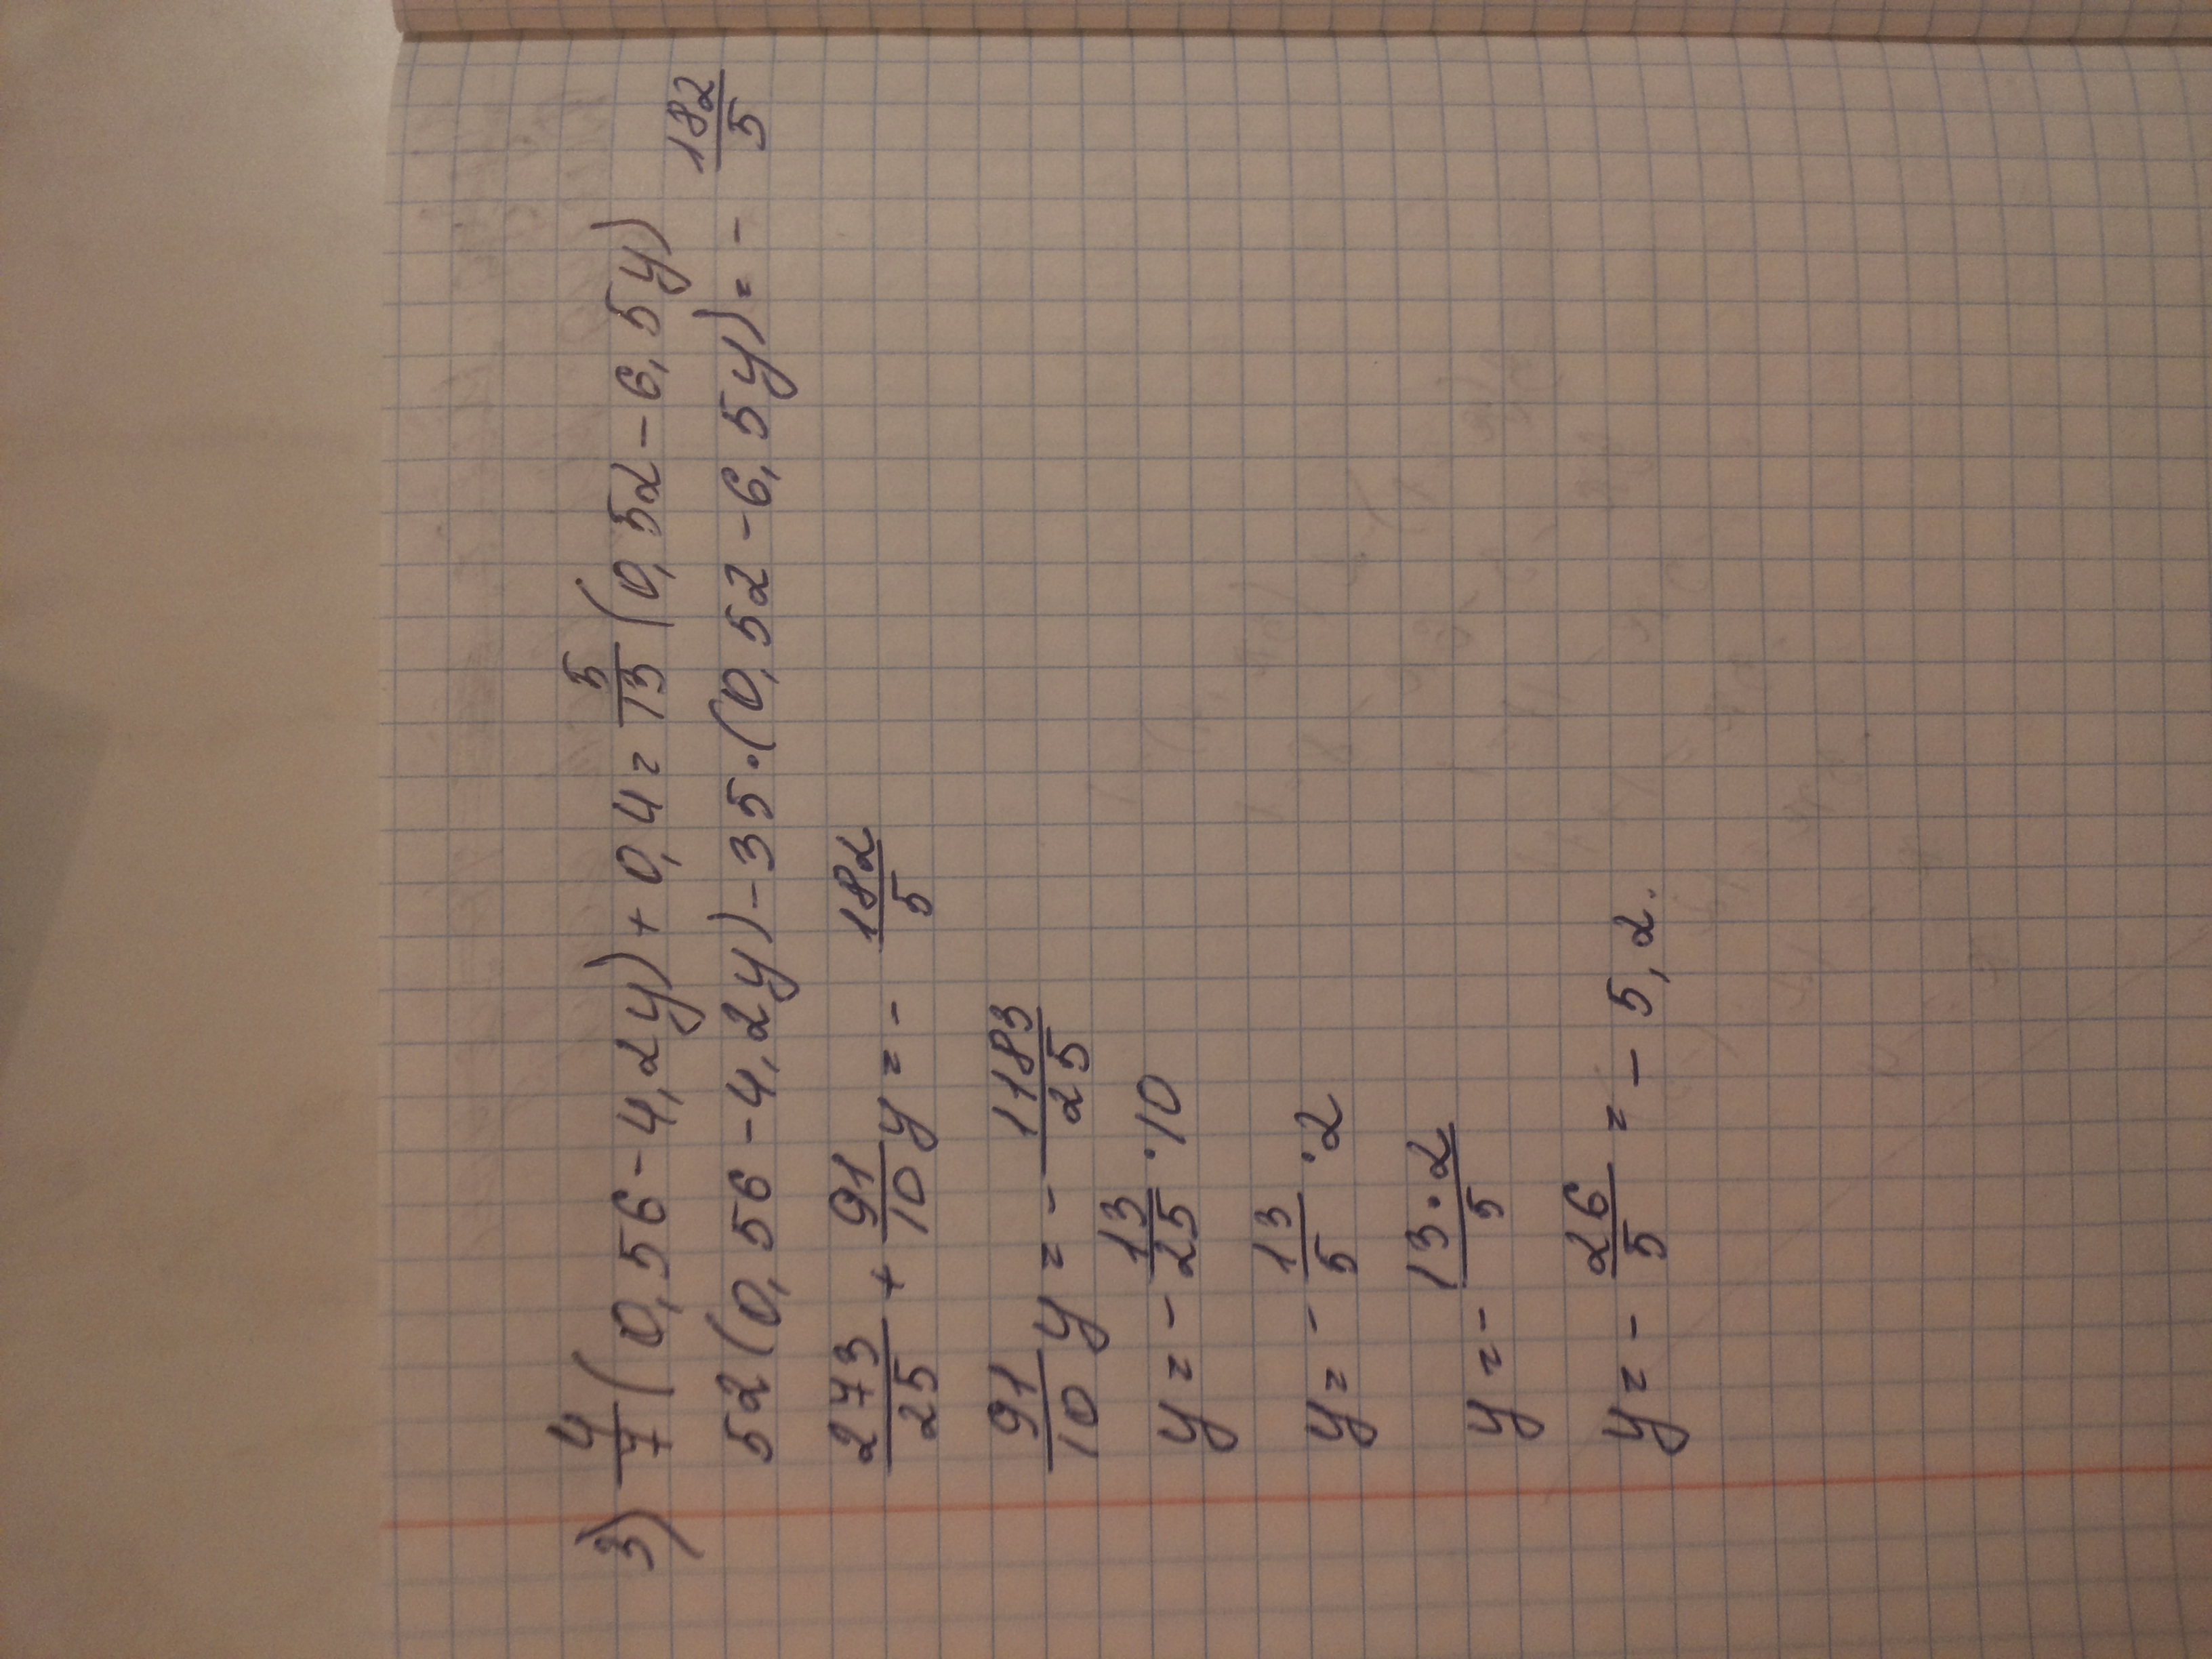 3) 4/7 (0,56 - 4,2y) + 0,4 = 5/13 (0,52 - 6,5y)
52(0,56 - 4,2y) - 35·(0,52 - 6,5y) = - 182/5
273/25 + 91/10 y = - 182/5
91/10 y = - 1183/25
y = - 13/25 · 10
y = - 13/5 · 2
y = - 13·2/5
y = - 26/5 = - 5,2.